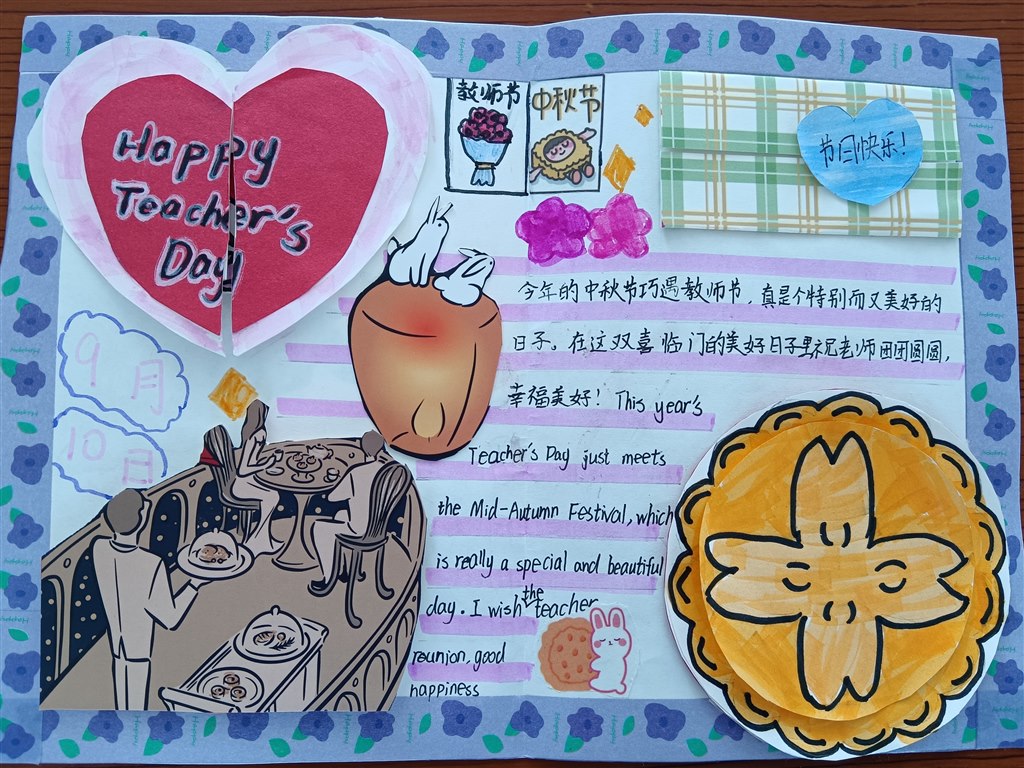 Happy
Teacher's
Day
教师节
中秋节
节日快乐!
9月
10日
今年的中秋节巧遇教师节,真是个特别而又美好的
日子。在这双喜临门的美好日子里祝老师团团圆圆,
幸福美好! This year's
Teacher's Day just meets
the Mid-Autumn Festival, which
is really a special and beautiful
day. I wish the teacher
reunion, good
happiness